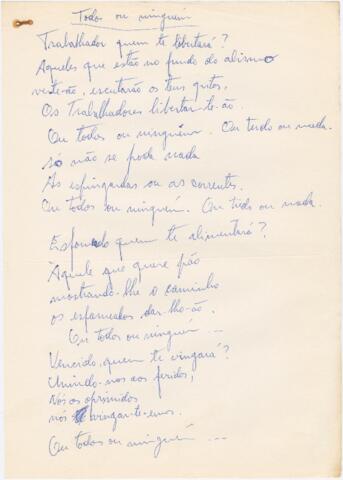 Todos ou ninguém
Trabalhador quem te libertará?
Aqueles que estão no fundo do abismo
ver-te-ão, escutarão os teus gritos,
Os Trabalhadores libertar-te-ão.
Ou todos ou ninguém. Ou tudo ou nada.
Só não se pode nada
As espingardas ou as correntes.
Ou todos ou ninguém. Ou tudo ou nada.
Esfomeado quem te alimentará?
Àquele que quere pão
mostrando-lhe o caminho
os esfomeados dar-lho-ão.
Ou todos ou ninguém ...
Vencido, quem te vingará?
Unindo-nos aos feridos,
Nós os oprimidos
nós vingar-te-emos.
Ou todos ou ninguém ...